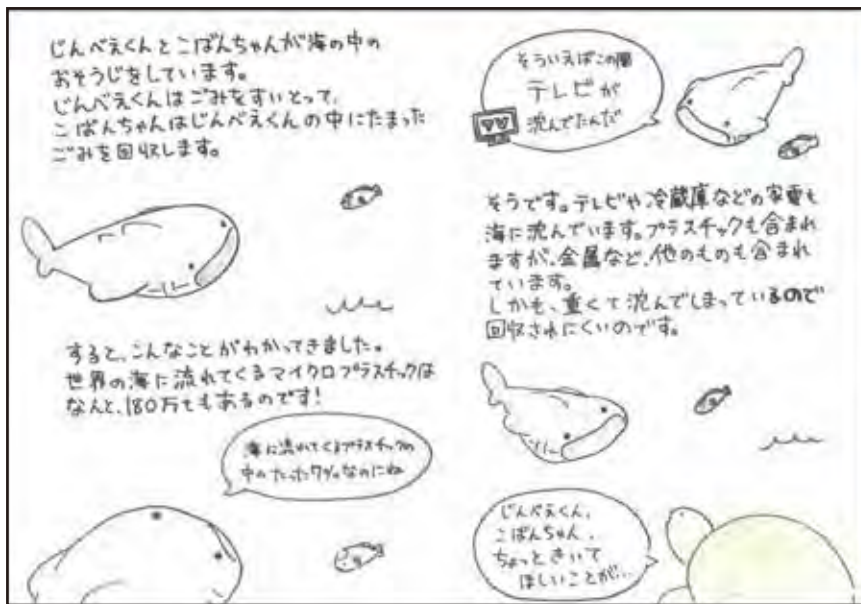 じんべえくんとこばんちゃんが海の中の
おそうじをしています。
じんべえくんはごみをすいとって、
こばんちゃんはじんべえくんの中にたまった
ごみを回収します。
すると、こんなことがわかってきました。
世界の海に流れてくるマイクロプラスチックは
なんと、180万tもあるのです!
海に流れてくるプラスチックの
中のたった9%なのにね
そういえばこの間
テレビが
沈んでたんだ
そうです。テレビや冷蔵庫などの家電も
海に沈んでいます。プラスチックも含まれ
ますが、金属など、他のものも含まれ
ています。
しかも、重くて沈んでしまっているので
回収されにくいのです。
じんべえくん、
こばんちゃん、
ちょっときいて
ほしいことが…